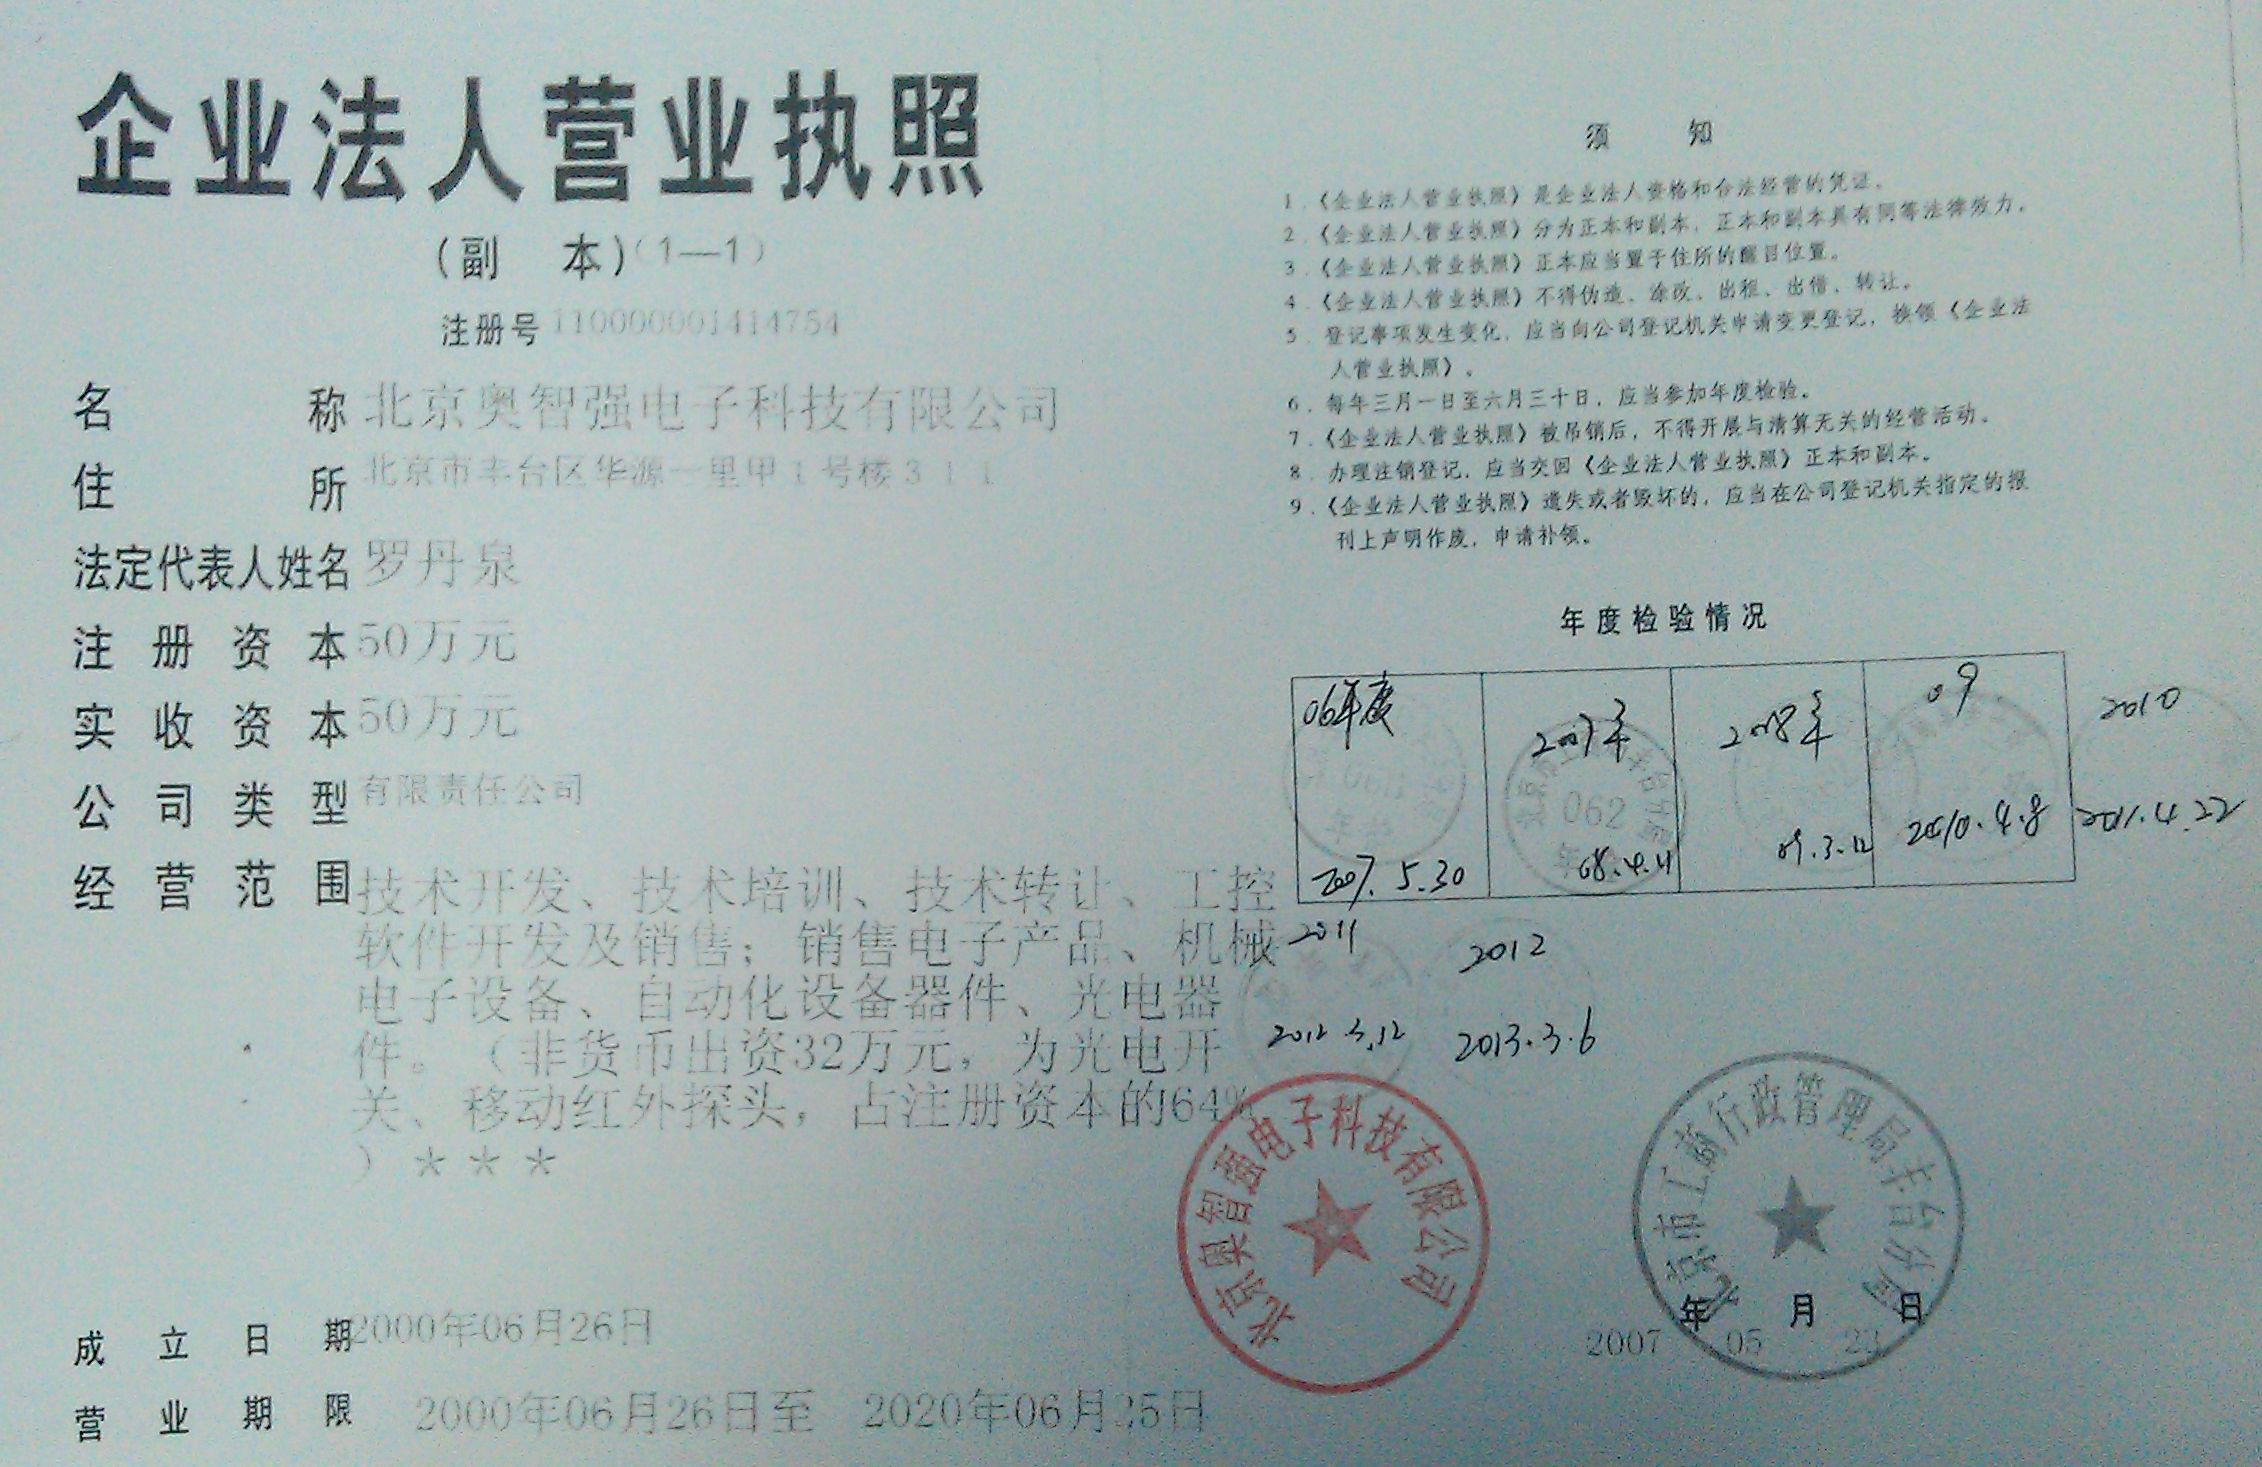 企业法人营业执照
(副 本)(1—1)
注册号 110000001414754
名 称 北京奥智强电子科技有限公司
住 所 北京市丰台区华源一里甲1号楼311
法定代表人姓名 罗丹泉
注册资本 50万元
实收资本 50万元
公司类型 有限责任公司
经营范围 技术开发、技术培训、技术转让、工控
软件开发及销售；销售电子产品、机械
电子设备、自动化设备器件、光电器
件。（非货币出资32万元，为光电开
关、移动红外探头，占注册资本的64%
）＊＊＊
成立日期 2000年06月26日
营业期限 2000年06月26日至 2020年06月25日
须 知
1．《企业法人营业执照》是企业法人资格和合法经营的凭证。
2．《企业法人营业执照》分为正本和副本，正本和副本具有同等法律效力。
3．《企业法人营业执照》正本应当置于住所的醒目位置。
4．《企业法人营业执照》不得伪造、涂改、出租、出借、转让。
5．登记事项发生变化，应当向公司登记机关申请变更登记，换领《企业法
人营业执照》。
6．每年三月一日至六月三十日，应当参加年度检验。
7．《企业法人营业执照》被吊销后，不得开展与清算无关的经营活动。
8．办理注销登记，应当交回《企业法人营业执照》正本和副本。
9．《企业法人营业执照》遗失或者毁坏的，应当在公司登记机关指定的报
刊上声明作废，申请补领。
年度检验情况
06年度
2007.5.30
2007年
062
08.4.11
2008年
09.3.12
09
2010.4.8
2010
2011.4.22
2011
2012.3.12
2012
2013.3.6
北京奥智强电子科技有限公司
北京市工商行政管理局丰台分局
年 月 日
2007 05